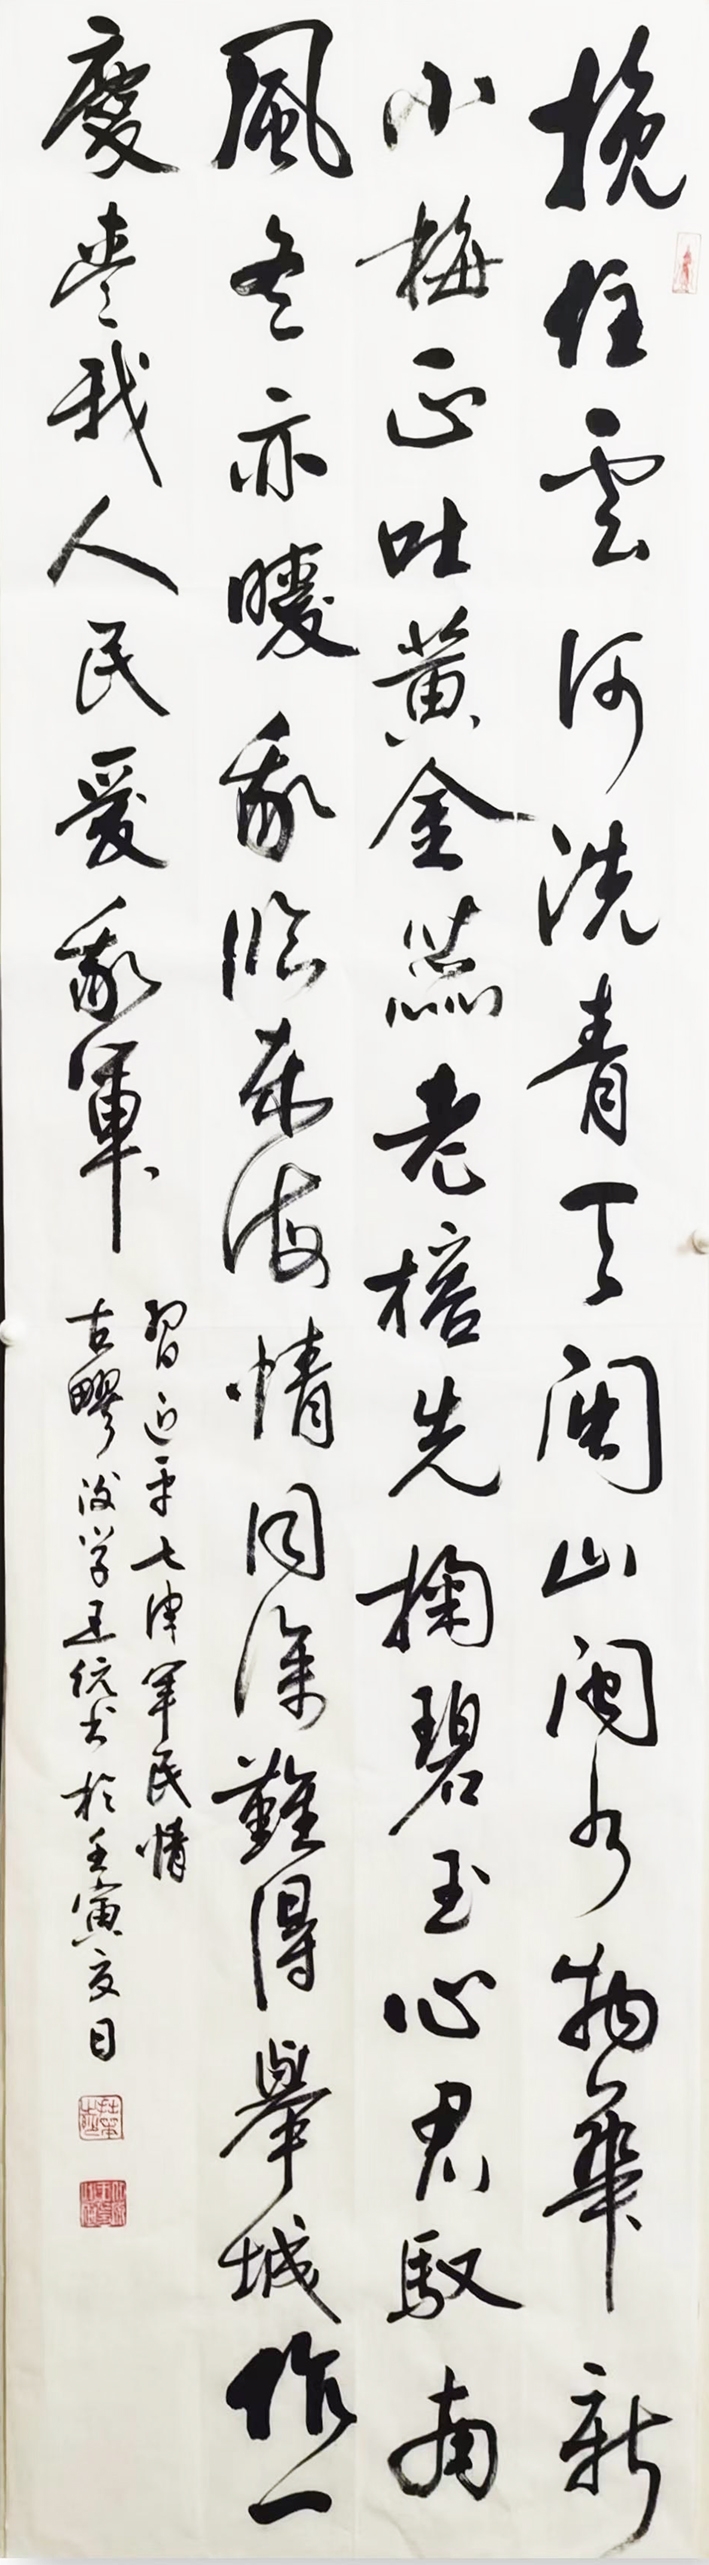 挽住雲河洗青天閩山閩水物華新
小梅正吐黄金蕊老榕先掬碧玉心君馭南
風冬亦暖我臨東海情同深難得舉城作一
慶愛我人民愛我軍
習近平七律軍民情
古後學書於壬寅夏日